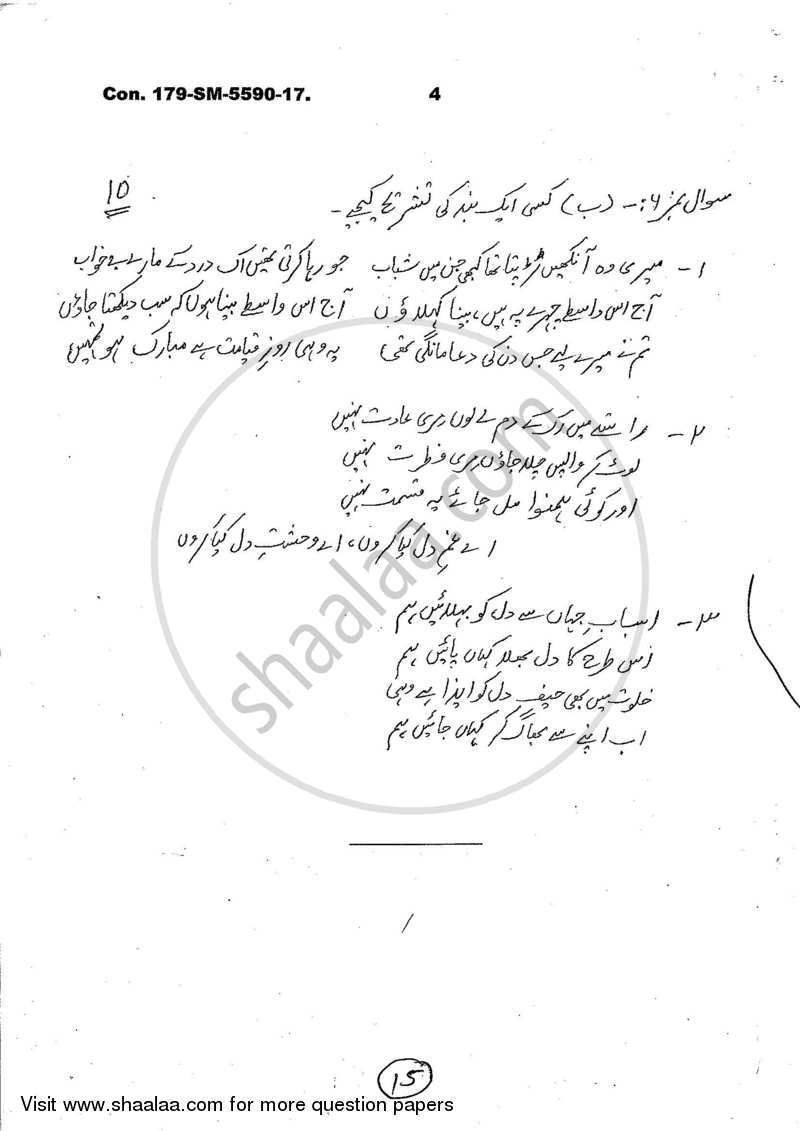 Con. 179-SM-5590-17. 4
سوال نمبر ۶:- (ب) کسی ایک بند کی تشریح کیجیے۔ 10
۱- میری وہ آنکھیں تڑپتا تھا کبھی جن میں شباب جو رہا کرتی تھیں اک درد کے مارے بے خواب
آج اس واسطے چہرے پہ ہیں، بینا کہلاؤں آج اس واسطے بینا ہوں کہ سب دیکھتا جاؤں
تم نے میرے لیے جس دن کی دعا مانگی تھی یہ وہی روزِ قیامت ہے مبارک ہو تمہیں
۲- راستے میں رک کے دم لے لوں مری عادت نہیں
لوٹ کر واپس چلا جاؤں مری فطرت نہیں
اور کوئی ہمنوا مل جائے یہ قسمت نہیں
اے غمِ دل کیا کروں، اے وحشتِ دل کیا کروں
۳- اسبابِ جہاں سے دل کو بہلائیں ہم
اس طرح کا دل بھلا کہاں پائیں ہم
خلوت میں بھی حیف دل کو ایذا ہے وہی
اب اپنے سے بھاگ کر کہاں جائیں ہم
shaalaa.com
15
Visit www.shaalaa.com for more question papers